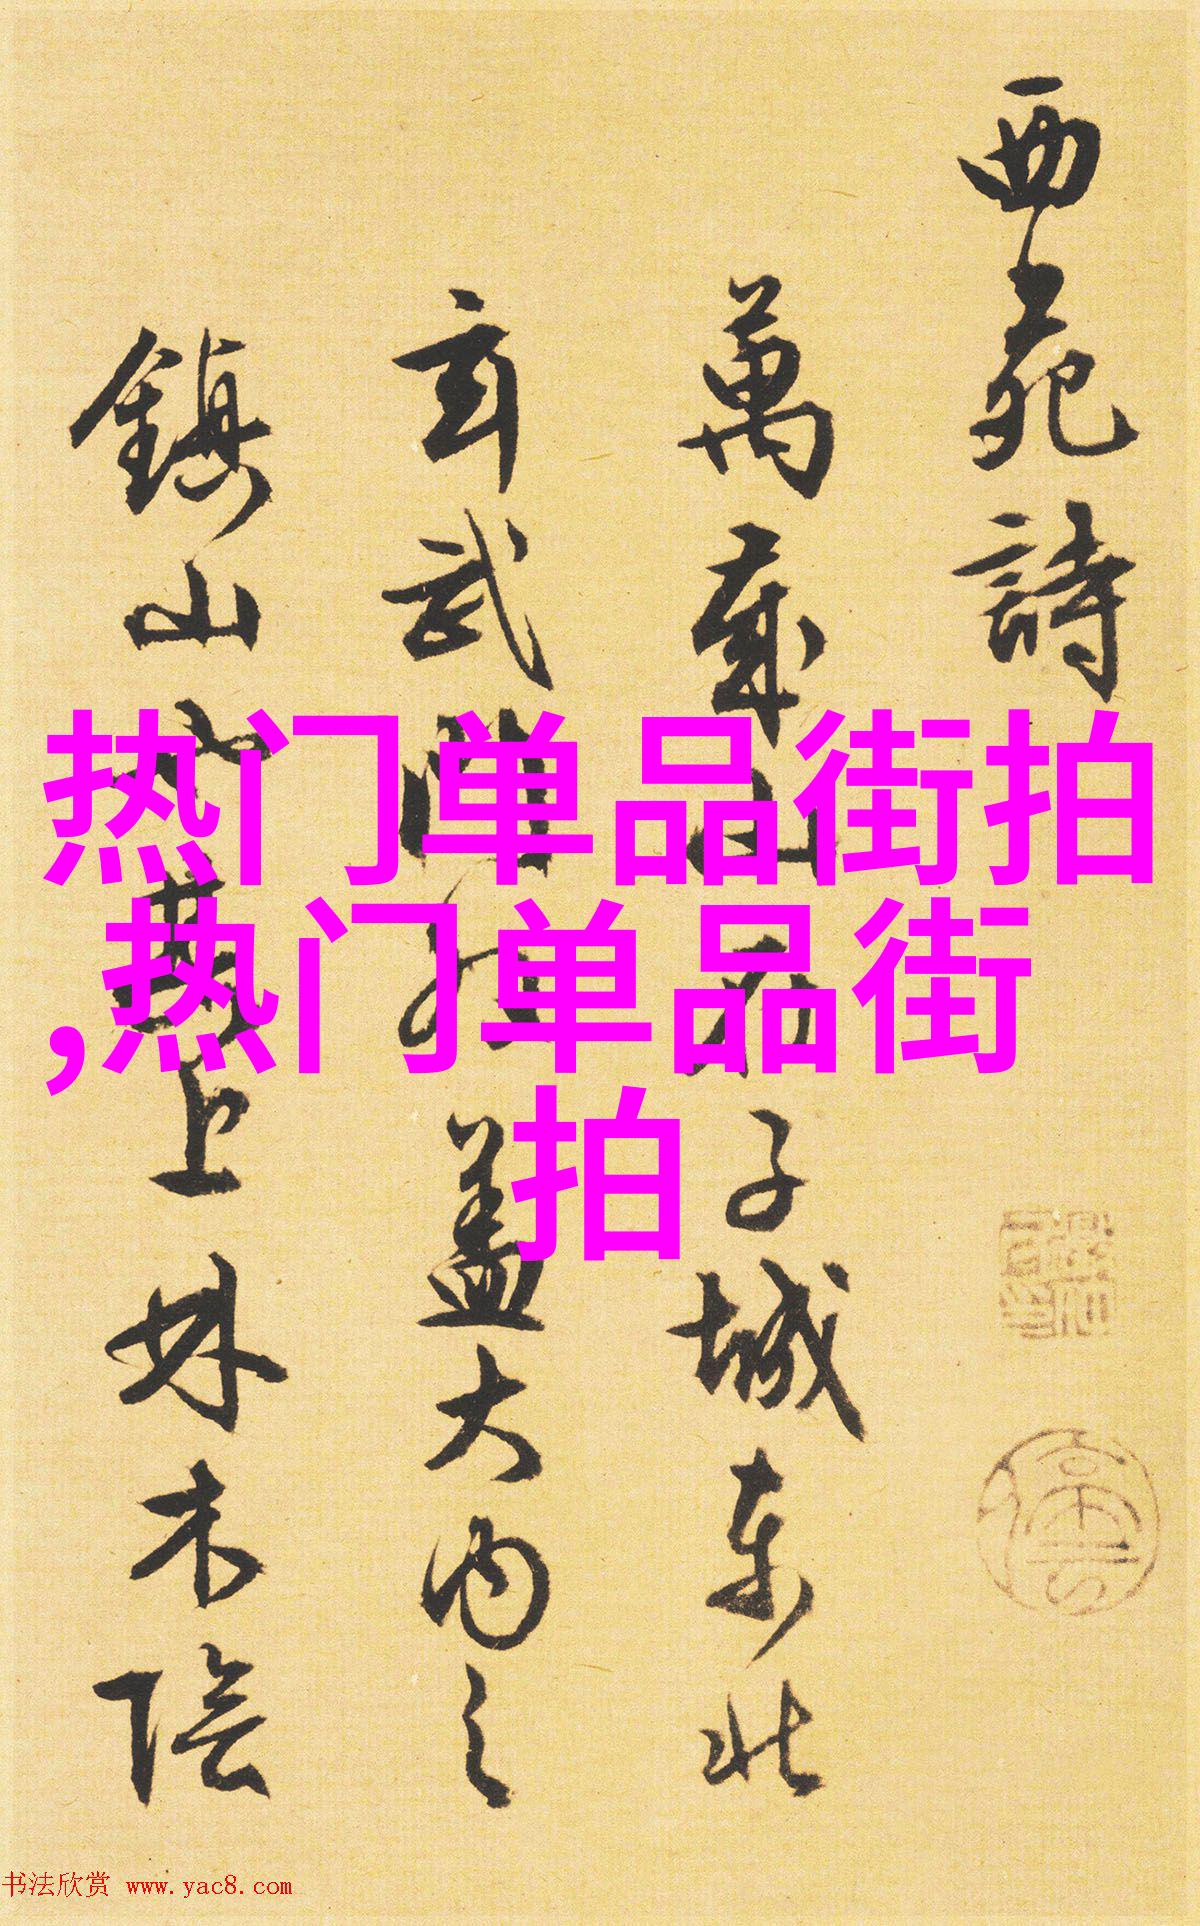 西苑詩
萬歲山在子城東北
玄武門外盖大内之
鎮山也其上林木陰
热门单品街拍
,热门单品街
拍
书法欣赏 www.yac8.com